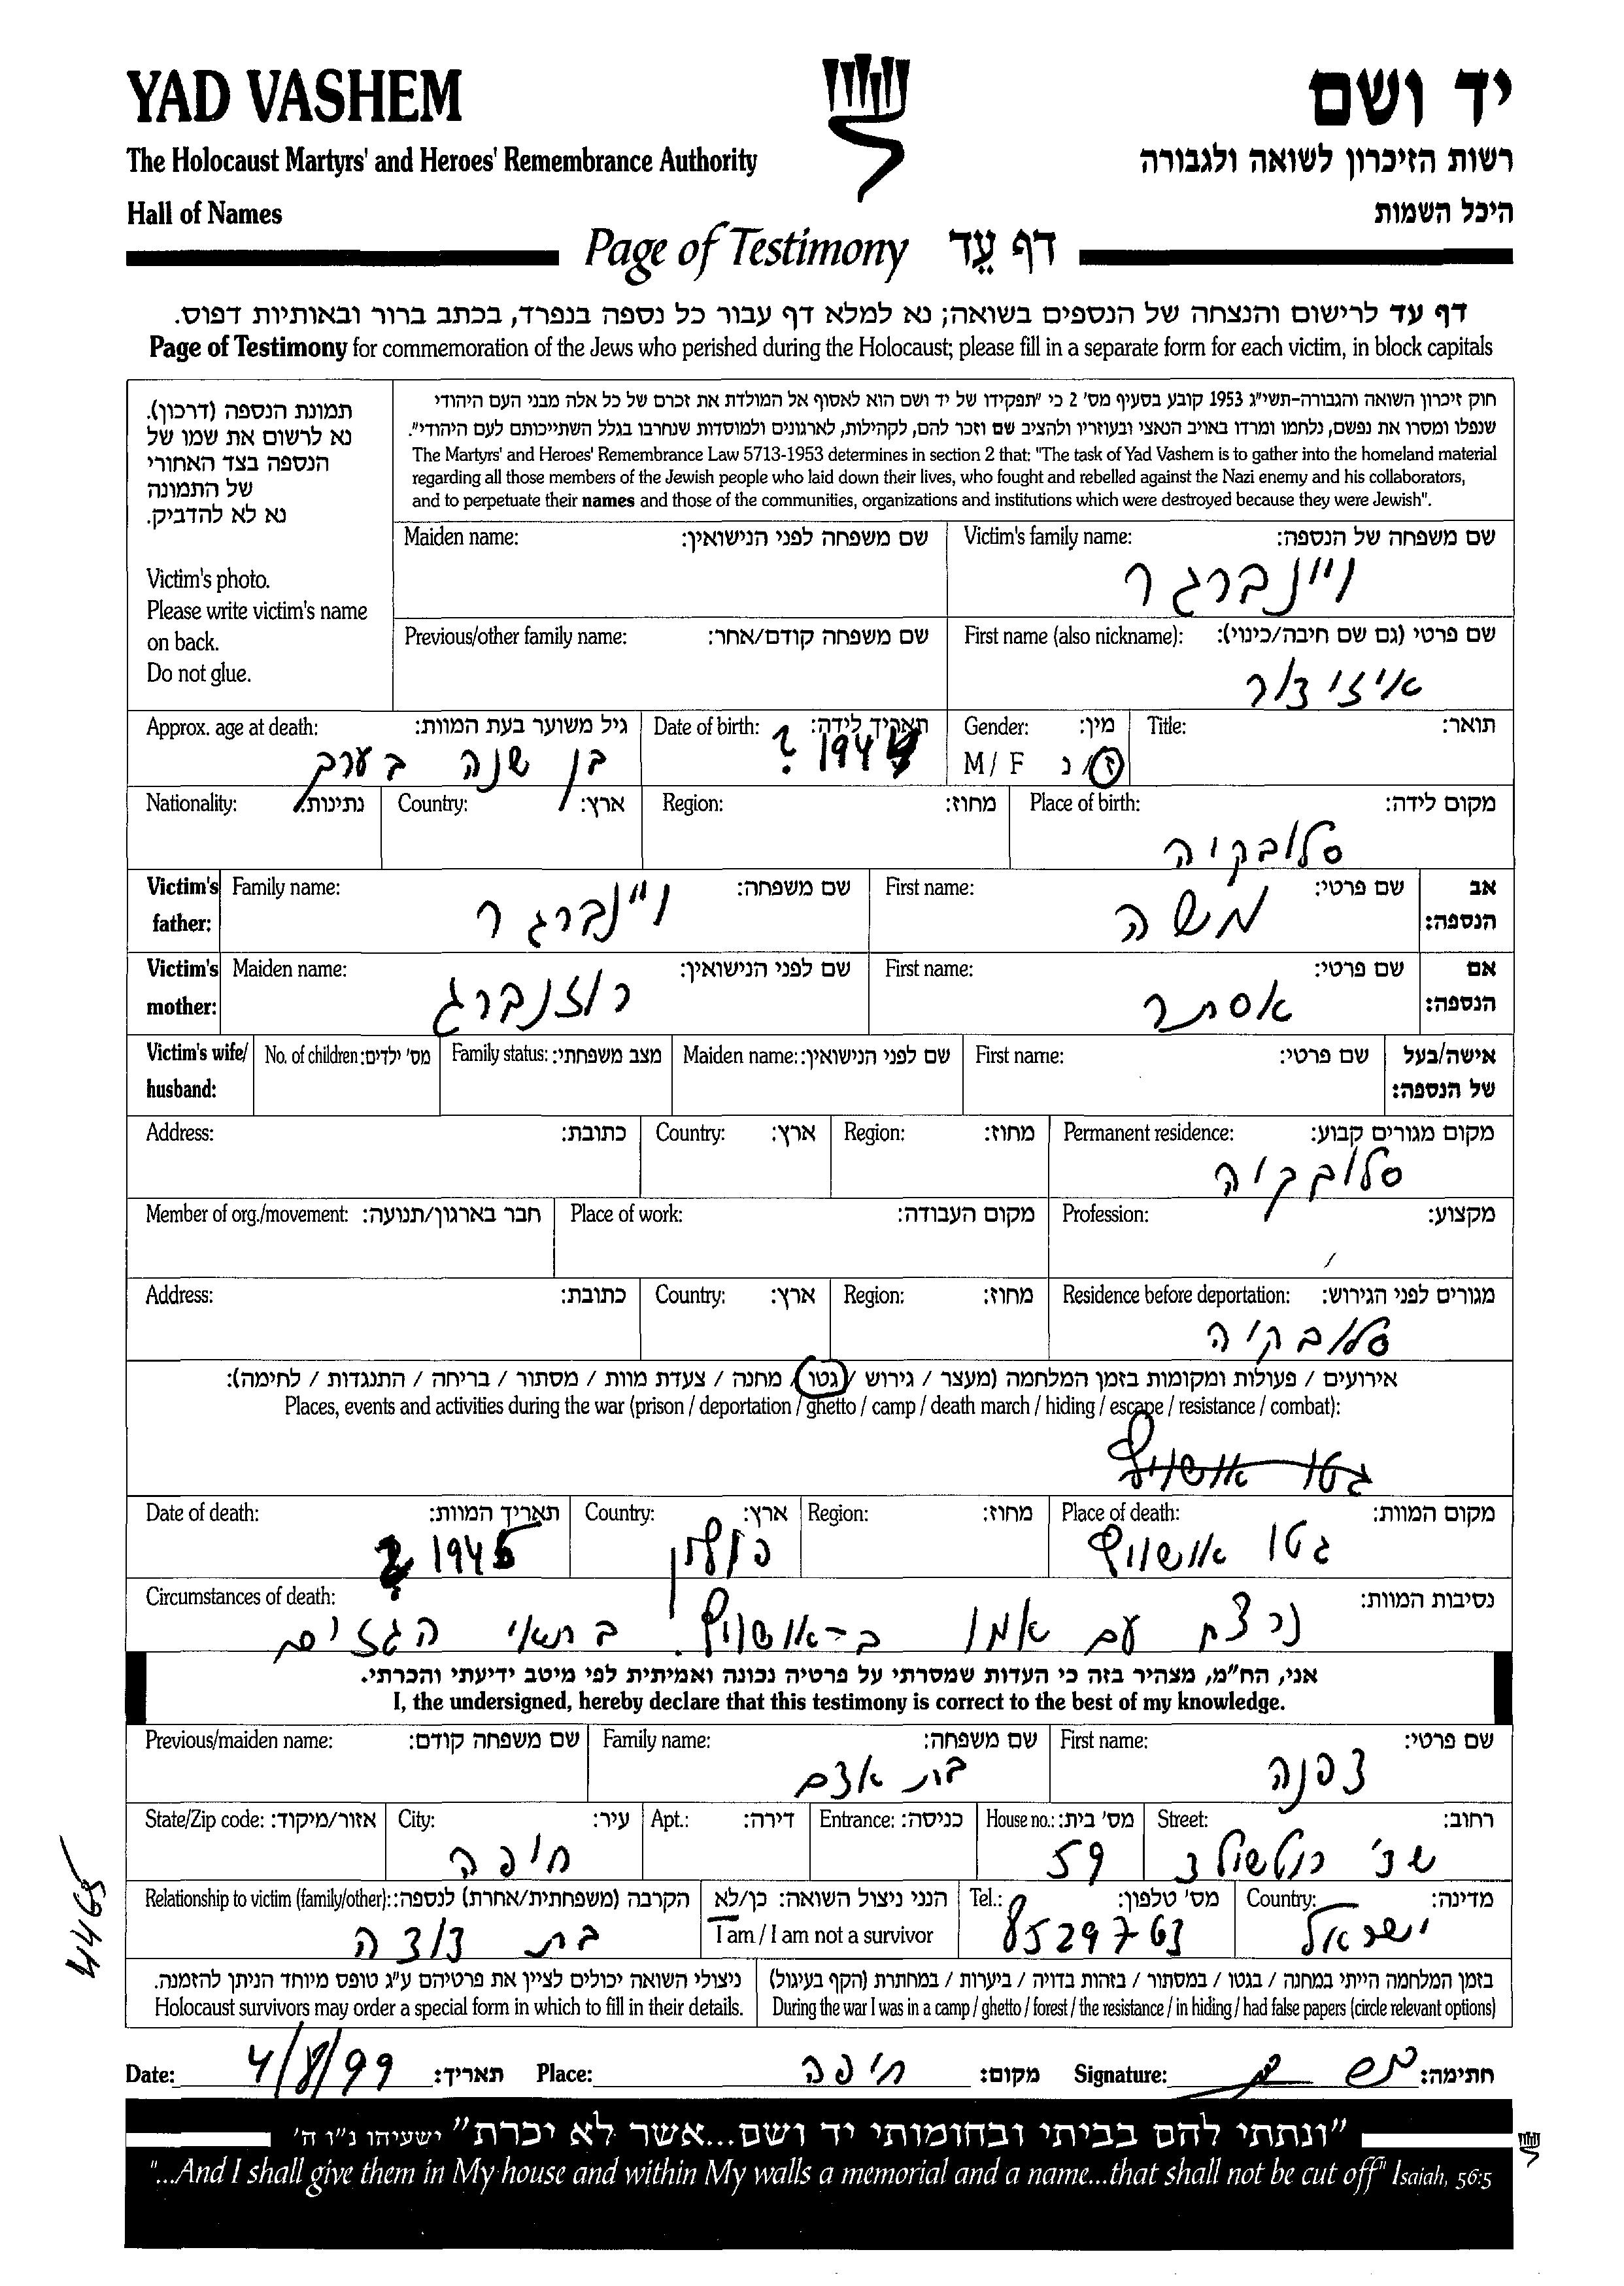 YAD VASHEM
יד ושם
The Holocaust Martyrs' and Heroes' Remembrance Authority
רשות הזיכרון לשואה ולגבורה
Hall of Names
היכל השמות
Page of Testimony דף עֵד
דף עד לרישום והנצחה של הנספים בשואה; נא למלא דף עבור כל נספה בנפרד, בכתב ברור ובאותיות דפוס.
Page of Testimony for commemoration of the Jews who perished during the Holocaust; please fill in a separate form for each victim, in block capitals
חוק זיכרון השואה והגבורה-תשי"ג 1953 קובע בסעיף מס' 2 כי "תפקידו של יד ושם הוא לאסוף אל המולדת את זכרם של כל אלה מבני העם היהודי
שנפלו ומסרו את נפשם, נלחמו ומרדו באויב הנאצי ובעוזריו ולהציב שם וזכר להם, לקהילות, לארגונים ולמוסדות שנחרבו בגלל השתייכותם לעם היהודי".
The Martyrs' and Heroes' Remembrance Law 5713-1953 determines in section 2 that: "The task of Yad Vashem is to gather into the homeland material
regarding all those members of the Jewish people who laid down their lives, who fought and rebelled against the Nazi enemy and his collaborators,
and to perpetuate their names and those of the communities, organizations and institutions which were destroyed because they were Jewish".
תמונת הנספה (דרכון).
נא לרשום את שמו של
הנספה בצד האחורי
של התמונה
נא לא להדביק.
Victim's photo.
Please write victim's name
on back.
Do not glue.
Maiden name: שם משפחה לפני הנישואין:
Victim's family name: שם משפחה של הנספה:
ויינברגר
Previous/other family name: שם משפחה קודם/אחר:
First name (also nickname): שם פרטי (גם שם חיבה/כינוי):
איזידור
Approx. age at death: גיל משוער בעת המוות:
בן שנה בערך
Date of birth: תאריך לידה:
1944 ?
Gender: מין:
M / F ז / נ
Title: תואר:
Nationality: נתינות:
Country: ארץ:
Region: מחוז:
Place of birth: מקום לידה:
סלובקיה
Victim's father: Family name: שם משפחה:
ויינברגר
First name: שם פרטי:
משה
אב הנספה:
Victim's mother: Maiden name: שם לפני הנישואין:
רוזנברג
First name: שם פרטי:
אסתר
אם הנספה:
Victim's wife/ husband:
No. of children: מס' ילדים:
Family status: מצב משפחתי:
Maiden name: שם לפני הנישואין:
First name: שם פרטי:
אישה/בעל של הנספה:
Address: כתובת:
Country: ארץ:
Region: מחוז:
Permanent residence: מקום מגורים קבוע:
סלובקיה
Member of org./movement: חבר בארגון/תנועה:
Place of work: מקום העבודה:
Profession: מקצוע:
Address: כתובת:
Country: ארץ:
Region: מחוז:
Residence before deportation: מגורים לפני הגירוש:
סלובקיה
אירועים / פעולות ומקומות בזמן המלחמה (מעצר / גירוש / גטו / מחנה / צעדת מוות / מסתור / בריחה / התנגדות / לחימה):
Places, events and activities during the war (prison / deportation / ghetto / camp / death march / hiding / escape / resistance / combat):
גטו אושוויץ
Date of death: תאריך המוות:
1945 ?
Country: ארץ:
פולין
Region: מחוז:
Place of death: מקום המוות:
גטו אושוויץ
Circumstances of death: נסיבות המוות:
נרצח עם אמו ב-אושוויץ. בתאי הגזים
אני, הח"מ, מצהיר בזה כי העדות שמסרתי על פרטיה נכונה ואמיתית לפי מיטב ידיעתי והכרתי.
I, the undersigned, hereby declare that this testimony is correct to the best of my knowledge.
Previous/maiden name: שם משפחה קודם:
Family name: שם משפחה:
בת אדם
First name: שם פרטי:
דפנה
State/Zip code: אזור/מיקוד:
City: עיר:
חיפה
Apt.: דירה:
Entrance: כניסה:
House no.: מס' בית:
59
Street: רחוב:
שד'
Relationship to victim (family/other): הקרבה (משפחתית/אחרת) לנספה:
בת דודה
הנני ניצול השואה: כן/לא
I am / I am not a survivor
Tel.: מס' טלפון:
8529763
Country: מדינה:
ישראל
ניצולי השואה יכולים לציין את פרטיהם ע"ג טופס מיוחד הניתן להזמנה.
Holocaust survivors may order a special form in which to fill in their details.
בזמן המלחמה הייתי במחנה / בגטו / במסתור / בזהות בדויה / ביערות / במחתרת (הקף בעיגול)
During the war I was in a camp / ghetto / forest / the resistance / in hiding / had false papers (circle relevant options)
4465
Date: 4/8/99 תאריך: Place: חיפה מקום: Signature: חתימה:
"ונתתי להם בביתי ובחומותי יד ושם...אשר לא יכרת" ישעיהו נ"ו ה'
"...And I shall give them in My house and within My walls a memorial and a name...that shall not be cut off" Isaiah, 56:5